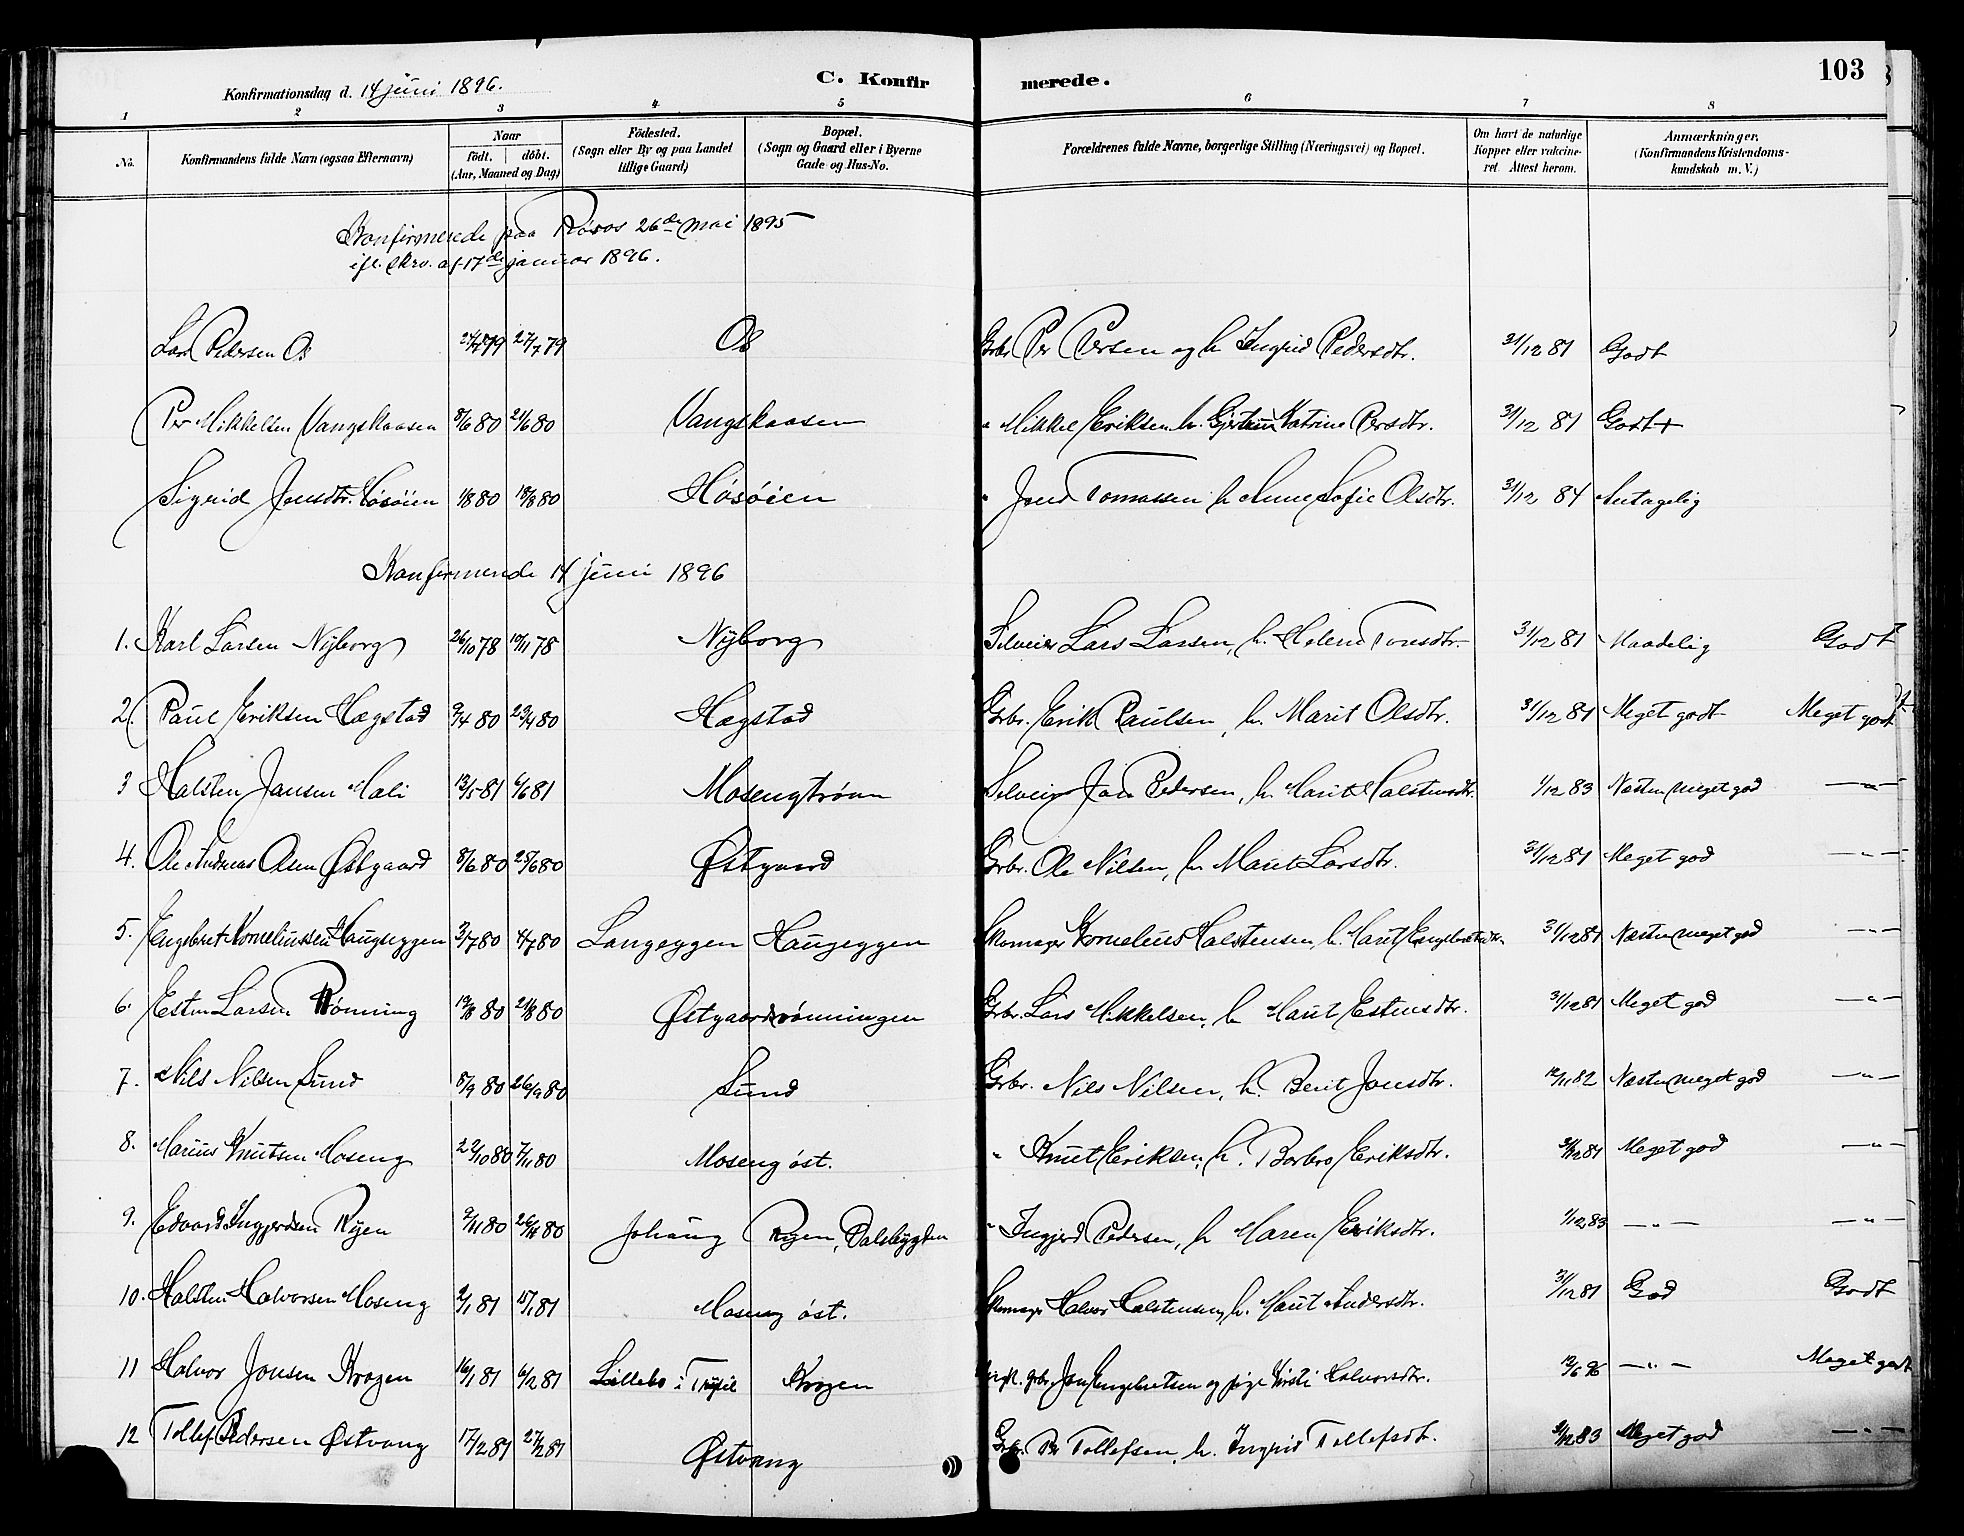 103
Konfirmationsdag d. 14 juni 1896. C. Konfirmerede.
1 2 3 4 5 6 7 8
No. Konfirmandens fulde Navn (ogsaa Efternavn) Naar födt. döbt. (Aar, Maaned og Dag) Födested. (Sogn eller By og paa Landet tillige Gaard) Bopæl. (Sogn og Gaard eller i Byerne Gade og Hus-No. Forældrenes fulde Navne, borgerlige Stilling (Næringsvei) og Bopæl. Om havt de naturlige Kopper eller vaccineret. Attest herom. Anmærkninger. (Konfirmandens Kristendomskundskab m. V.)
Konfirmerede paa Röros 26de mai 1895
ifl. skrv. af 17de januar 1896.
Lars Pedersen Os 27/7 79 Os Grbr. Per Persen og h. Ingrid Pedersdtr. 31/12 81 Godt
Per Mikkelsen Vangskaasen 8/6 80 21/6 80 Vangskaasen " Mikkel Eriksen h. Katrine Persdtr. 31/12 81 Godt+
Sigrid Jonsdtr. Hösöien 1/8 80 18/8 80 Hösöien " Jons Tomassen h. Anne Sofie Olsdtr. 31/12 84 Antagelig
Konfirmerede 14 juni 1896
1. Karl Larsen Nyborg 26/10 78 10/11 78 Nyborg Selveier Lars Larsen, h. Helene Tonsdtr. 31/12 81 Maadelig Godt
2 Paul Eriksen Hægstad 9/4 80 23/4 80 Hægstad Grbr. Erik Paulsen, h. Marit Olsdtr. 31/12 81 Meget godt Meget godt
3 Halsten Jansen Mali 13/5 81 6/6 81 Mosengtröen Selveier Jan Pedersen, h. Marit Halstensdtr. 1/12 83 Næsten meget god —"—
4. Ole Andreas Olsen Østgaard 8/6 80 25/6 80 Østgaard Grbr. Ole Nilsen, h. Marit Larsdtr. 31/12 81 Meget god —"—
5. Engebret Korneliussen Haugseggen 3/7 80 4/7 80 Langeggen Haugeggen Skomager Kornelius Halstensen, h. Marit Engebretsdtr. 31/12 81 Næsten meget god —"—
6. Esten Larsen Rönning 19/8 80 21/8 80 Østgaardrönningen Grbr. Lars Mikkelsen, h. Marit Estensdtr. 31/12 81 Meget god —"—
7. Nils Nilsen Sund 8/9 80 26/9 80 Sund Grbr. Nils Nilsen, h. Berit Jonsdtr. 12/11 82 Næsten meget god —"—
8. Marius Knutsen Moseng 22/10 80 7/11 80 Moseng öst. " Knut Eriksen, h. Barbro Eriksdtr. 31/12 81 Meget god —"—
9. Edvard Ingjerdsen Ryen 9/11 80 26/11 80 Ryen, Dalsbygden " Ingjerd Pedersen, h. Maren Eriksdtr. 1/12 83 —"— —"—
10. Halsten Halvorsen Moseng 2/1 81 15/1 81 Moseng öst. Skomager Halvor Halstensen, h. Marit Andersdtr. 31/12 81 God Godt
11 Halvor Jonsen Krogen 16/1 81 6/2 81 Lillebo i Trysil Krogen grbr. Jon Engebretsen og pige Kirsti Halvorsdtr. 12/6 96 —"— Meget godt
12 Tollef Pedersen Østvang 17/2 81 27/2 81 Østvang Grbr. Per Tollefsen, h. Ingrid Tollefsdtr. 31/12 83 Meget god —"—